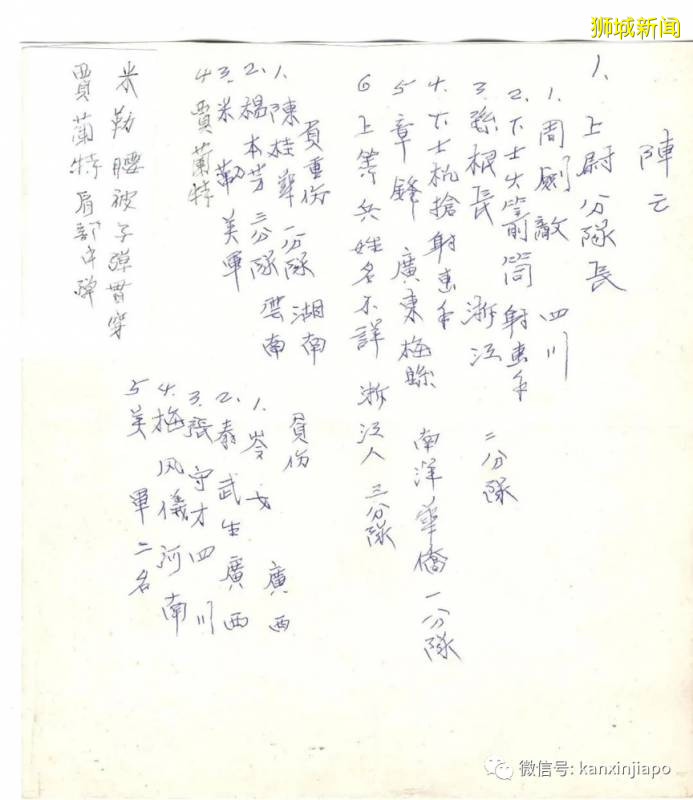 狮城新闻
陣亡
1. 上尉分隊長
1. 周劍敵 四川
2. 下士火箭筒射击手
3. 孫根長 浙江 二分隊
4. 下士机搶射击手
5 章鋒 廣東梅縣 南洋華僑 一分隊
6 上等兵姓名不詳 浙江人 三分隊
負重伤
1. 陳桂華 一分隊 湖南
2. 楊本芳 三分隊 雲南
3. 米勒 美軍
4 賈蘭特
米勒腰被子彈貫穿
賈蘭特肩部中彈
負伤
1. 岑 廣西
2. 秦武生 廣西
3. 張守才 四川
4. 梅风儀 河南
5 美軍二名
微信号: kanxinjiapo